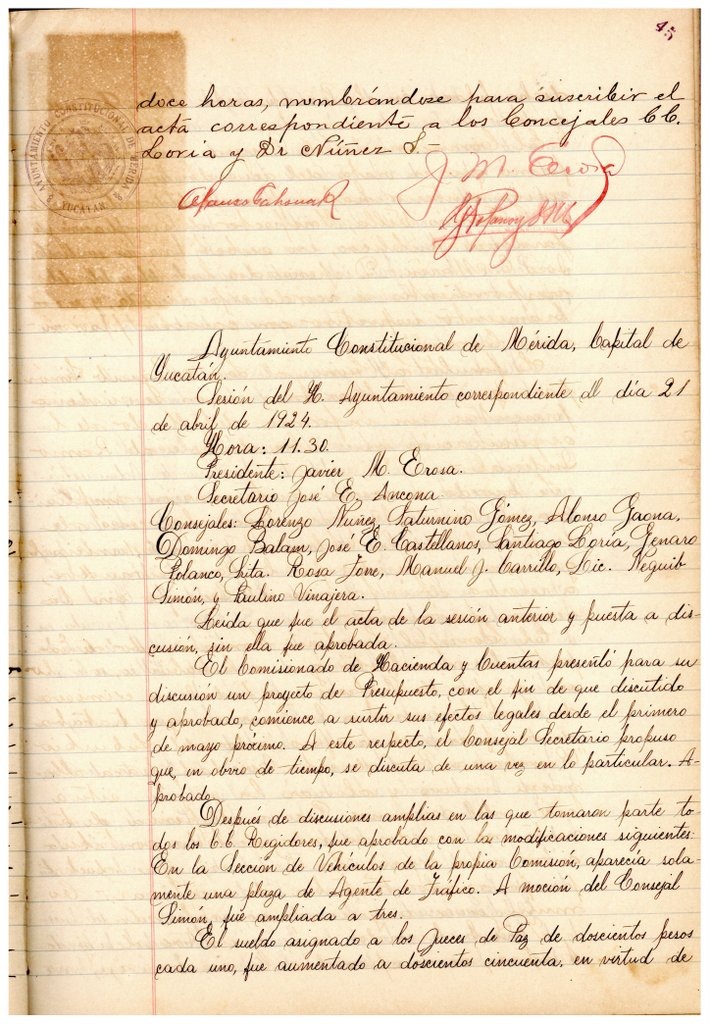 45
AYUNTAMIENTO CONSTITUCIONAL DE MERIDA
doce horas, nombrándose para suscribir el
acta correspondiente a los Concejales CC.
Loria y Dr Núñez S.-
J. M. Erosa
Ayuntamiento Constitucional de Mérida, Capital de
Yucatán.
Sesión del H. Ayuntamiento correspondiente dl día 21
de abril de 1924.
Hora: 11.30.
Presidente: Javier M. Erosa.
Secretario José E. Ancona
Consejales: Lorenzo Nuñez, Saturnino Gómez, Alonso Gaona,
Domingo Balam, José E. Castellanos, Santiago Loría, Genaro
Polanco, Srita. Rosa Torre, Manuel J. Carrillo, Lic. Neguib
Simón, y Paulino Vinajera.
Leída que fue el acta de la sesión anterior y puesta a dis-
cusión, sin ella fue aprobada.
El Comisionado de Hacienda y Cuentas presentó para su
discusión un proyecto de Presupuesto, con el fin de que discutido
y aprobado, comience a surtir sus efectos legales desde el primero
de mayo prócimo. A este respecto, el Consejal Secretario propuso
que, en obvio de tiempo, se discuta de una vez en lo particular. A-
probado.
Después de discusiones amplias en las que tomaron parte to-
dos los C.C. Regidores, fue aprobado con la modificaciones siguientes:
En la Sección de Vehículos de la propia Comisión, aparecía sola-
mente una plaza de Agente de Tráfico. A moción del Consejal
Simón, fue ampliada a tres.
El sueldo asignado a los Jueces de Paz de doscientos pesos
cada uno, fue aumentado a doscientos cincuenta, en virtud de